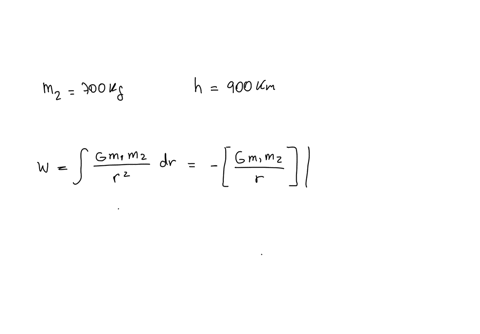 m₂ = 700 Kg h = 900 Km
W = ∫ Gm₁m₂/r² dr = -[Gm₁m₂/r]|